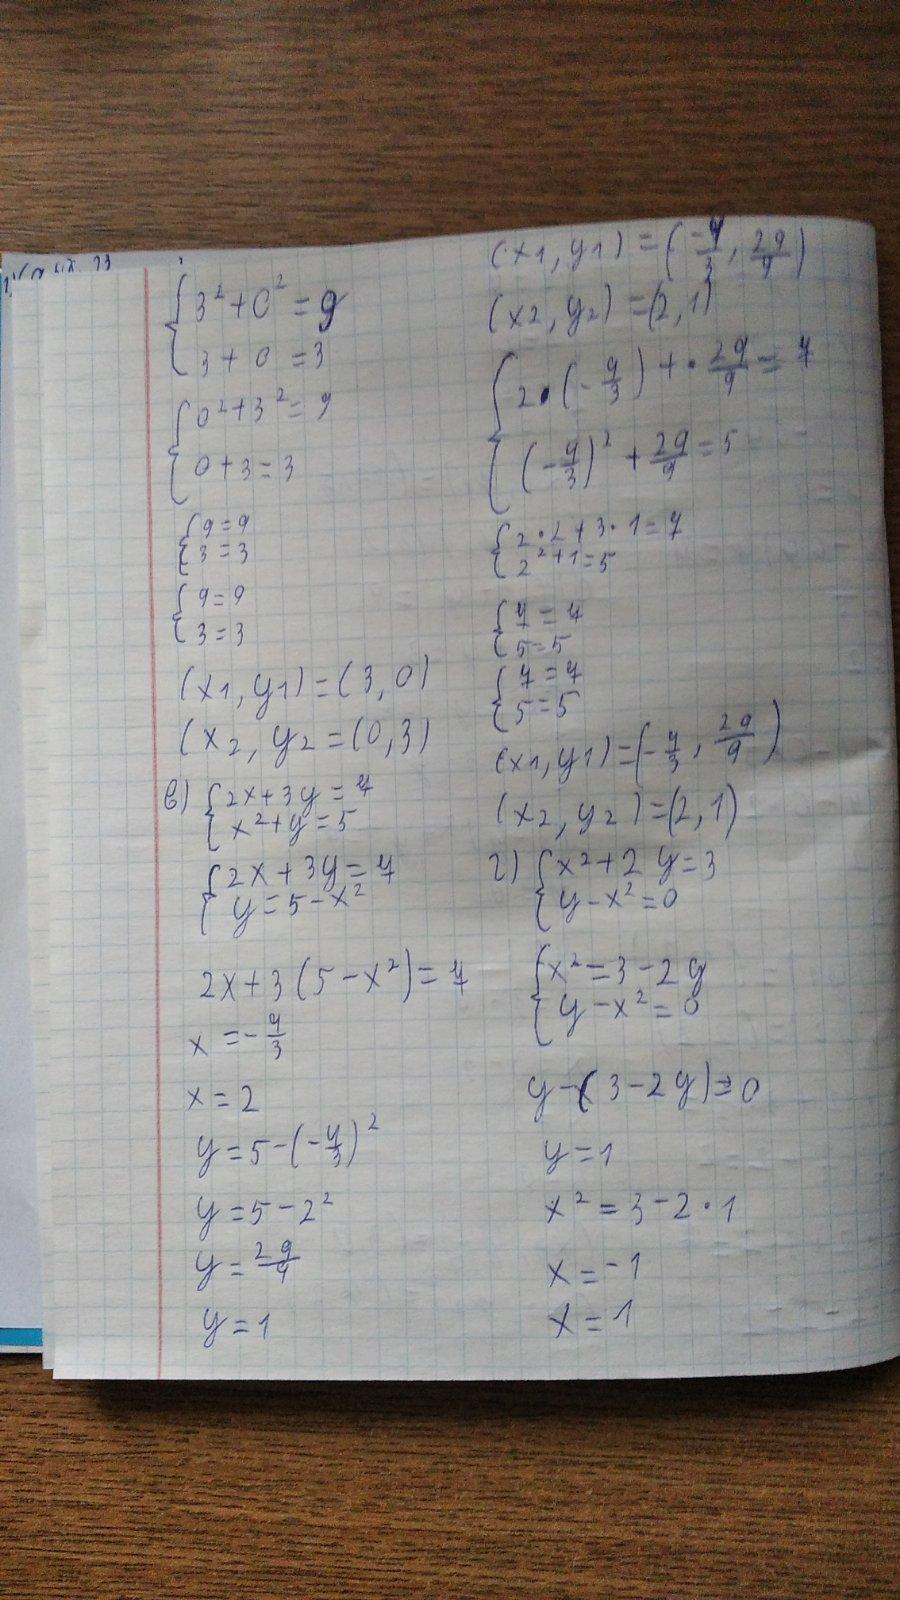 3² + 0² = 9
3 + 0 = 3
0² + 3² = 9
0 + 3 = 3
9 = 9
3 = 3
9 = 9
3 = 3
(x1, y1) = (3, 0)
(x2, y2 = (0, 3)
в) 2x + 3y = 7
x² + y = 5
2x + 3y = 7
y = 5 - x²
2x + 3(5 - x²) = 7
x = -4/3
x = 2
y = 5 - (-4/3)²
y = 5 - 2²
y = 29/9
y = 1
(x1, y1) = (-4/3, 29/9)
(x2, y2) = (2, 1)
2 · (-4/3) + · 29/9 = 7
(-4/3)² + 29/9 = 5
2 · 2 + 3 · 1 = 7
2² + 1 = 5
7 = 7
5 = 5
7 = 7
5 = 5
(x1, y1) = (-4/3, 29/9)
(x2, y2) = (2, 1)
г) x² + 2y = 3
y - x² = 0
x² = 3 - 2y
y - x² = 0
y - (3 - 2y) = 0
y = 1
x² = 3 - 2 · 1
x = -1
x = 1